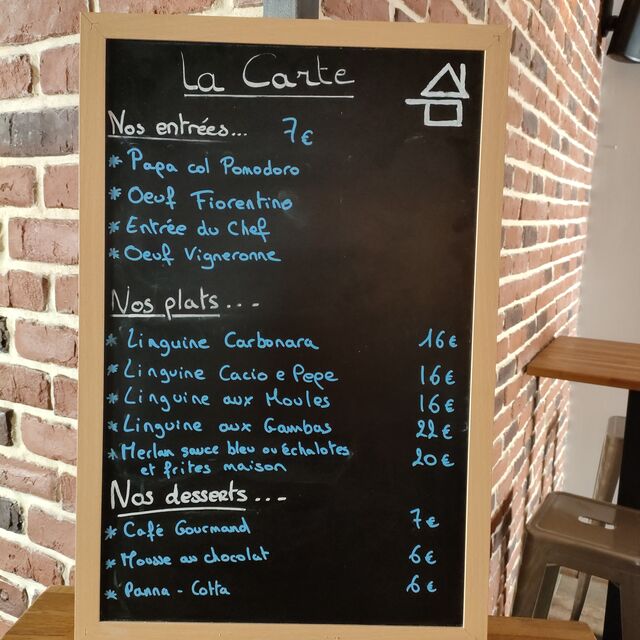 La Carte
Nos entrées... 7€
* Papa col Pomodoro
* Oeuf Fiorentino
* Entrée du Chef
* Oeuf Vigneronne
Nos plats...-
* Linguine Carbonara 16€
* Linguine Cacio e Pepe 16€
* Linguine aux Moules 16€
* Linguine aux Gambas 22€
* Merlan sauce bleu ou échalotes 20€
et frites maison
Nos desserts...-
* Café Gourmand 7€
* Mousse au chocolat 6€
* Panna - Cotta 6€